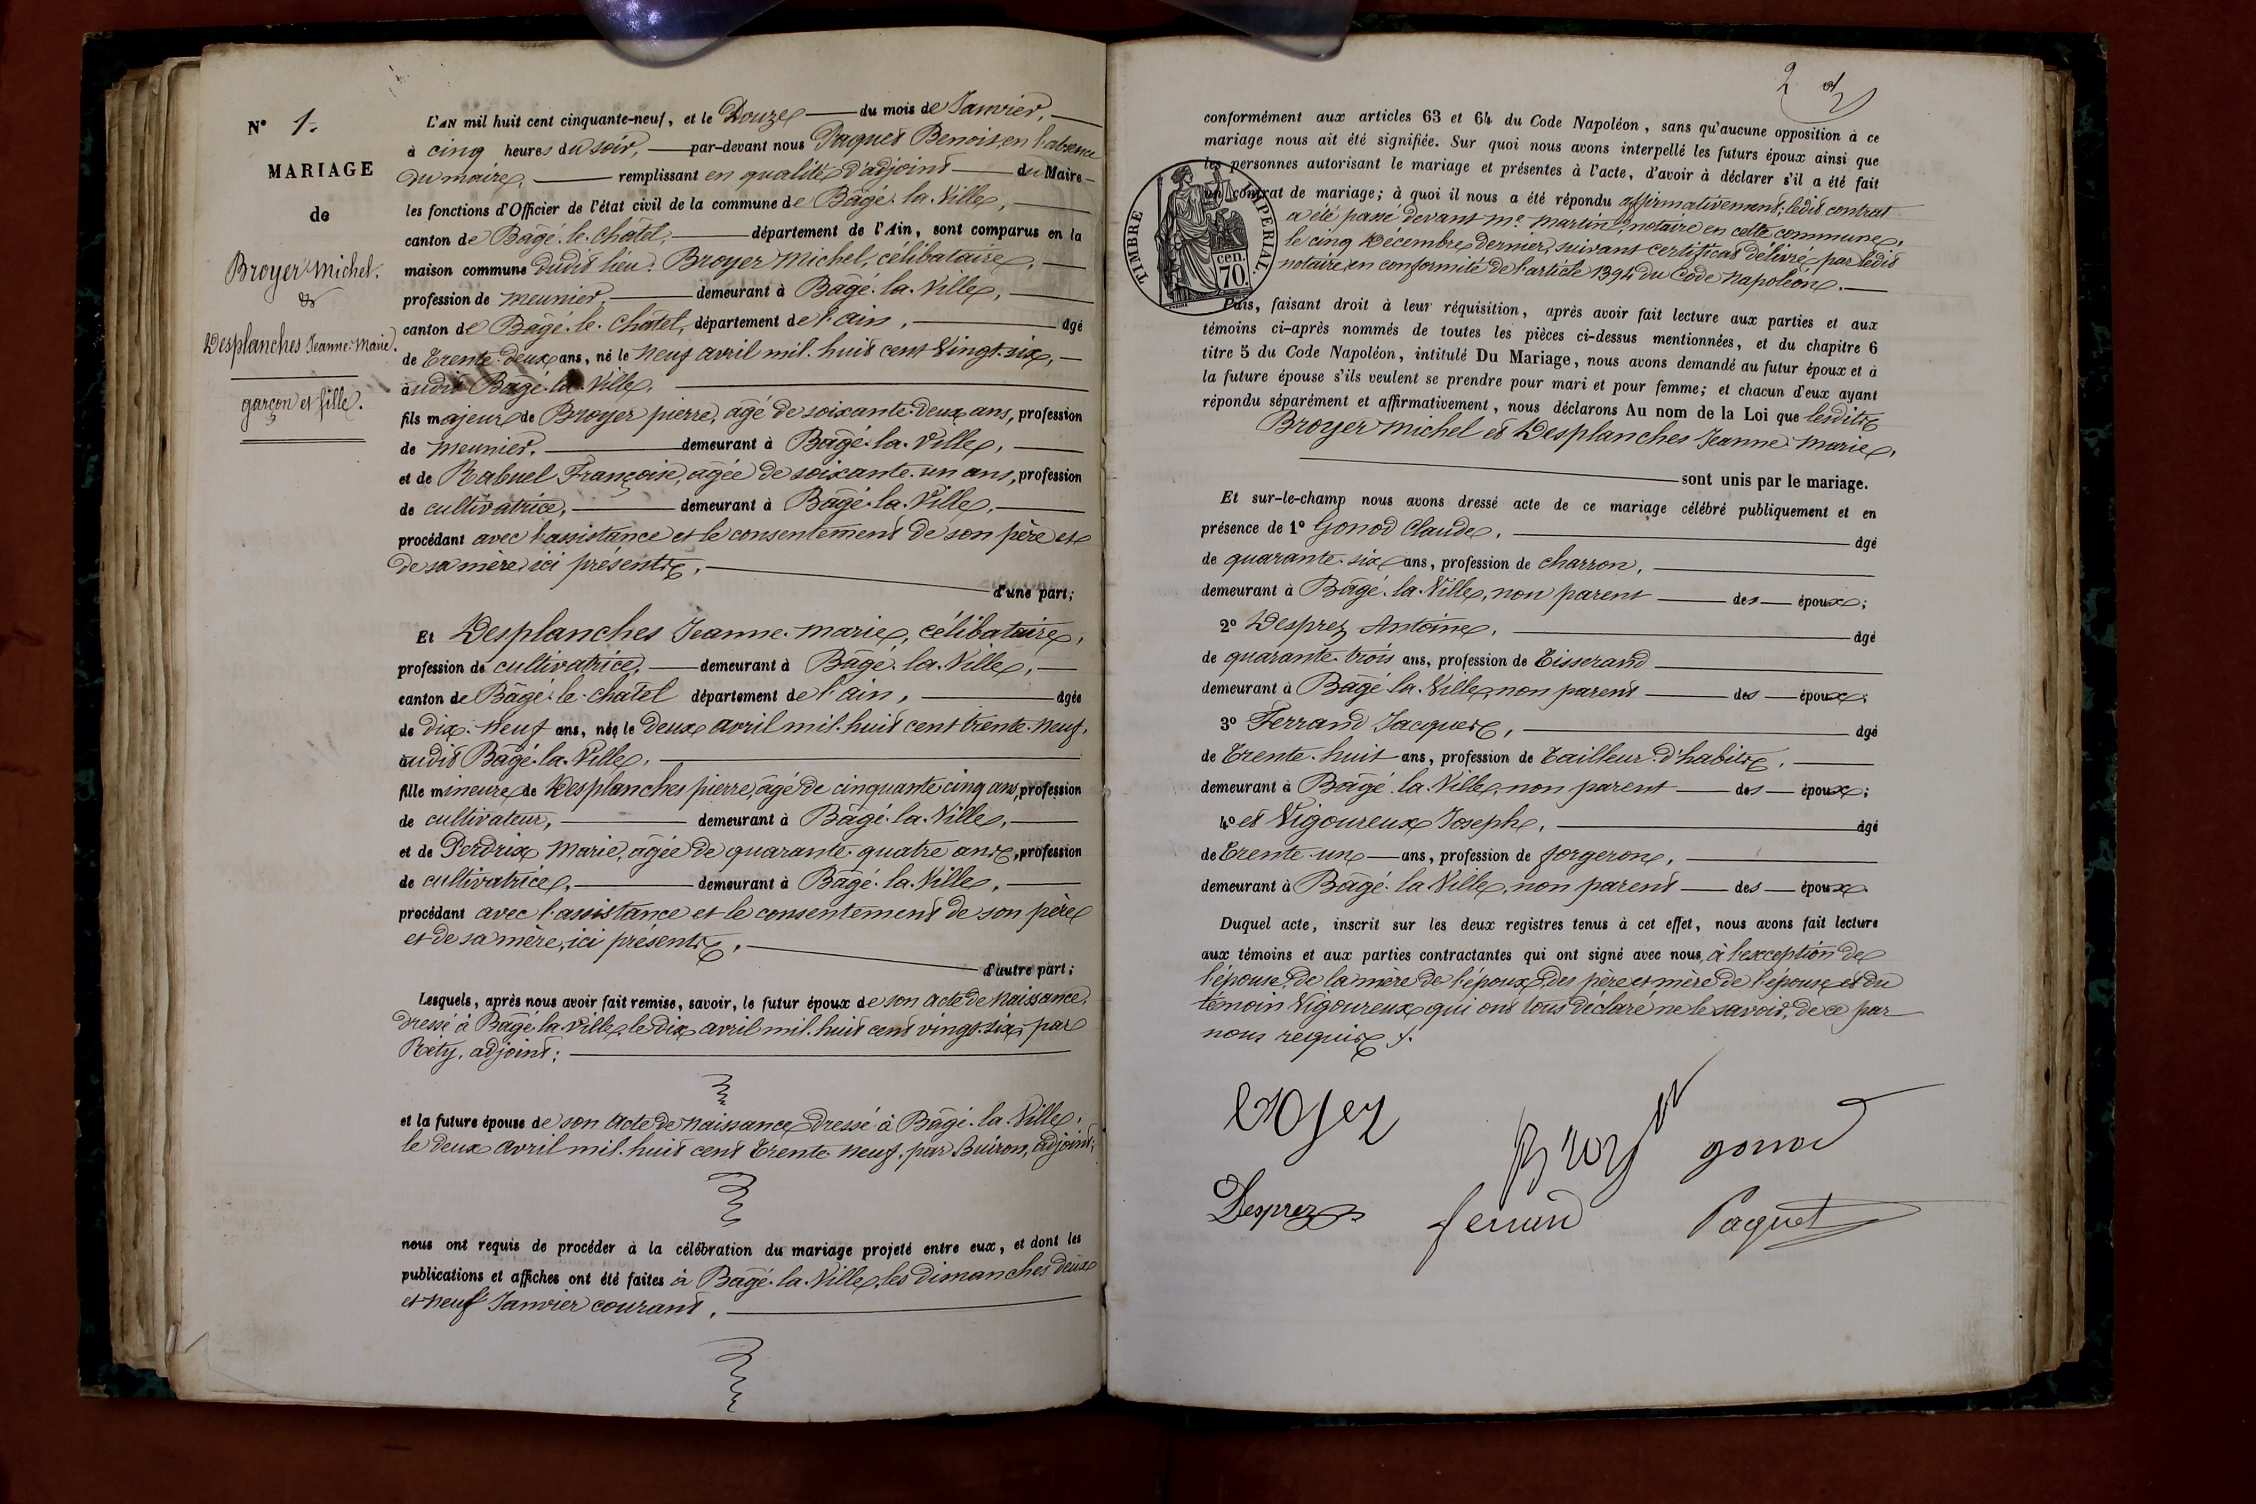 N° 1.
MARIAGE
de
Broyer Michel.
&
Desplanches Jeanne-Marie.
garçon et fille.
L'AN mil huit cent cinquante-neuf, et le Douze du mois de Janvier,
à cinq heures du soir, par-devant nous Paquet Benoit, en l'absence
du maire, remplissant en qualité d'adjoint du Maire
les fonctions d'Officier de l'état civil de la commune de Bâgé-la-Ville,
canton de Bâgé-le-Châtel, département de l'Ain, sont comparus en la
maison commune dudit lieu: Broyer Michel, célibataire,
profession de meunier, demeurant à Bâgé-la-Ville,
canton de Bâgé-le-Châtel, département de l'ain, âgé
de trente-deux ans, né le neuf avril mil-huit cent vingt-six,
audit Bâgé-la-Ville,
fils majeur de Broyer pierre, âgé de soixante-deux ans, profession
de meunier, demeurant à Bâgé-la-Ville,
et de Rabuel Françoise, âgée de soixante-un ans, profession
de cultivatrice, demeurant à Bâgé-la-Ville,
procédant avec l'assistance et le consentement de son père et
de sa mère, ici présents,
d'une part;
Et Desplanches Jeanne-Marie, célibataire,
profession de cultivatrice, demeurant à Bâgé-la-Ville,
canton de Bâgé-le-châtel département de l'ain, âgée
de dix-neuf ans, née le deux avril mil-huit cent trente-neuf,
audit Bâgé-la-Ville,
fille mineure de Desplanches pierre, âgé de cinquante cinq ans, profession
de cultivateur, demeurant à Bâgé-la-Ville,
et de Perdrix Marie, âgée de quarante-quatre ans, profession
de cultivatrice, demeurant à Bâgé-la-Ville,
procédant avec l'assistance et le consentement de son père
et de sa mère, ici présents,
d'autre part;
Lesquels, après nous avoir fait remise, savoir, le futur époux de son acte de naissance,
dressé à Bâgé-la-Ville, le dix avril mil-huit cent vingt-six, par
Réty, adjoint;
et la future épouse de son acte de naissance, dressé à Bâgé-la-Ville,
le deux avril mil-huit cent trente-neuf, par Buiron, adjoint;
nous ont requis de procéder à la célébration du mariage projeté entre eux, et dont les
publications et affiches ont été faites à Bâgé-la-Ville, les dimanches deux
et neuf Janvier courant,
2
conformément aux articles 63 et 64 du Code Napoléon, sans qu'aucune opposition à ce
mariage nous ait été signifiée. Sur quoi nous avons interpellé les futurs époux ainsi que
les personnes autorisant le mariage et présentes à l'acte, d'avoir à déclarer s'il a été fait
un contrat de mariage; à quoi il nous a été répondu affirmativement; ledit contrat
a été passé devant Me. Martin, notaire en cette commune,
le cinq Décembre dernier, suivant certificat délivré par ledit
notaire, en conformité de l'article 1394 du Code Napoléon.
TIMBRE IMPERIAL.
cen.
70.
Puis, faisant droit à leur réquisition, après avoir fait lecture aux parties et aux
témoins ci-après nommés de toutes les pièces ci-dessus mentionnées, et du chapitre 6
titre 5 du Code Napoléon, intitulé Du Mariage, nous avons demandé au futur époux et à
la future épouse s'ils veulent se prendre pour mari et pour femme; et chacun d'eux ayant
répondu séparément et affirmativement, nous déclarons Au nom de la Loi que lesdits
Broyer Michel et Desplanches Jeanne-Marie,
sont unis par le mariage.
Et sur-le-champ nous avons dressé acte de ce mariage célébré publiquement et en
présence de 1° Gonod Claude, âgé
de quarante-six ans, profession de charron,
demeurant à Bâgé-la-Ville, non parent des époux;
2° Desprez Antoine, âgé
de quarante-trois ans, profession de tisserand
demeurant à Bâgé-la-Ville, non parent des époux;
3° Ferrand Jacques, âgé
de trente-huit ans, profession de tailleur d'habits,
demeurant à Bâgé-la-Ville, non parent des époux;
4° et Vigoureux Joseph, âgé
de trente-un ans, profession de forgeron,
demeurant à Bâgé-la-Ville, non parent des époux.
Duquel acte, inscrit sur les deux registres tenus à cet effet, nous avons fait lecture
aux témoins et aux parties contractantes qui ont signé avec nous, à l'exception de
l'épouse, de la mère de l'époux, des père et mère de l'épouse et du
témoin Vigoureux, qui ont tous déclaré ne le savoir, de ce par
nous requis.
gonod
Desprez
ferrand
Paquet